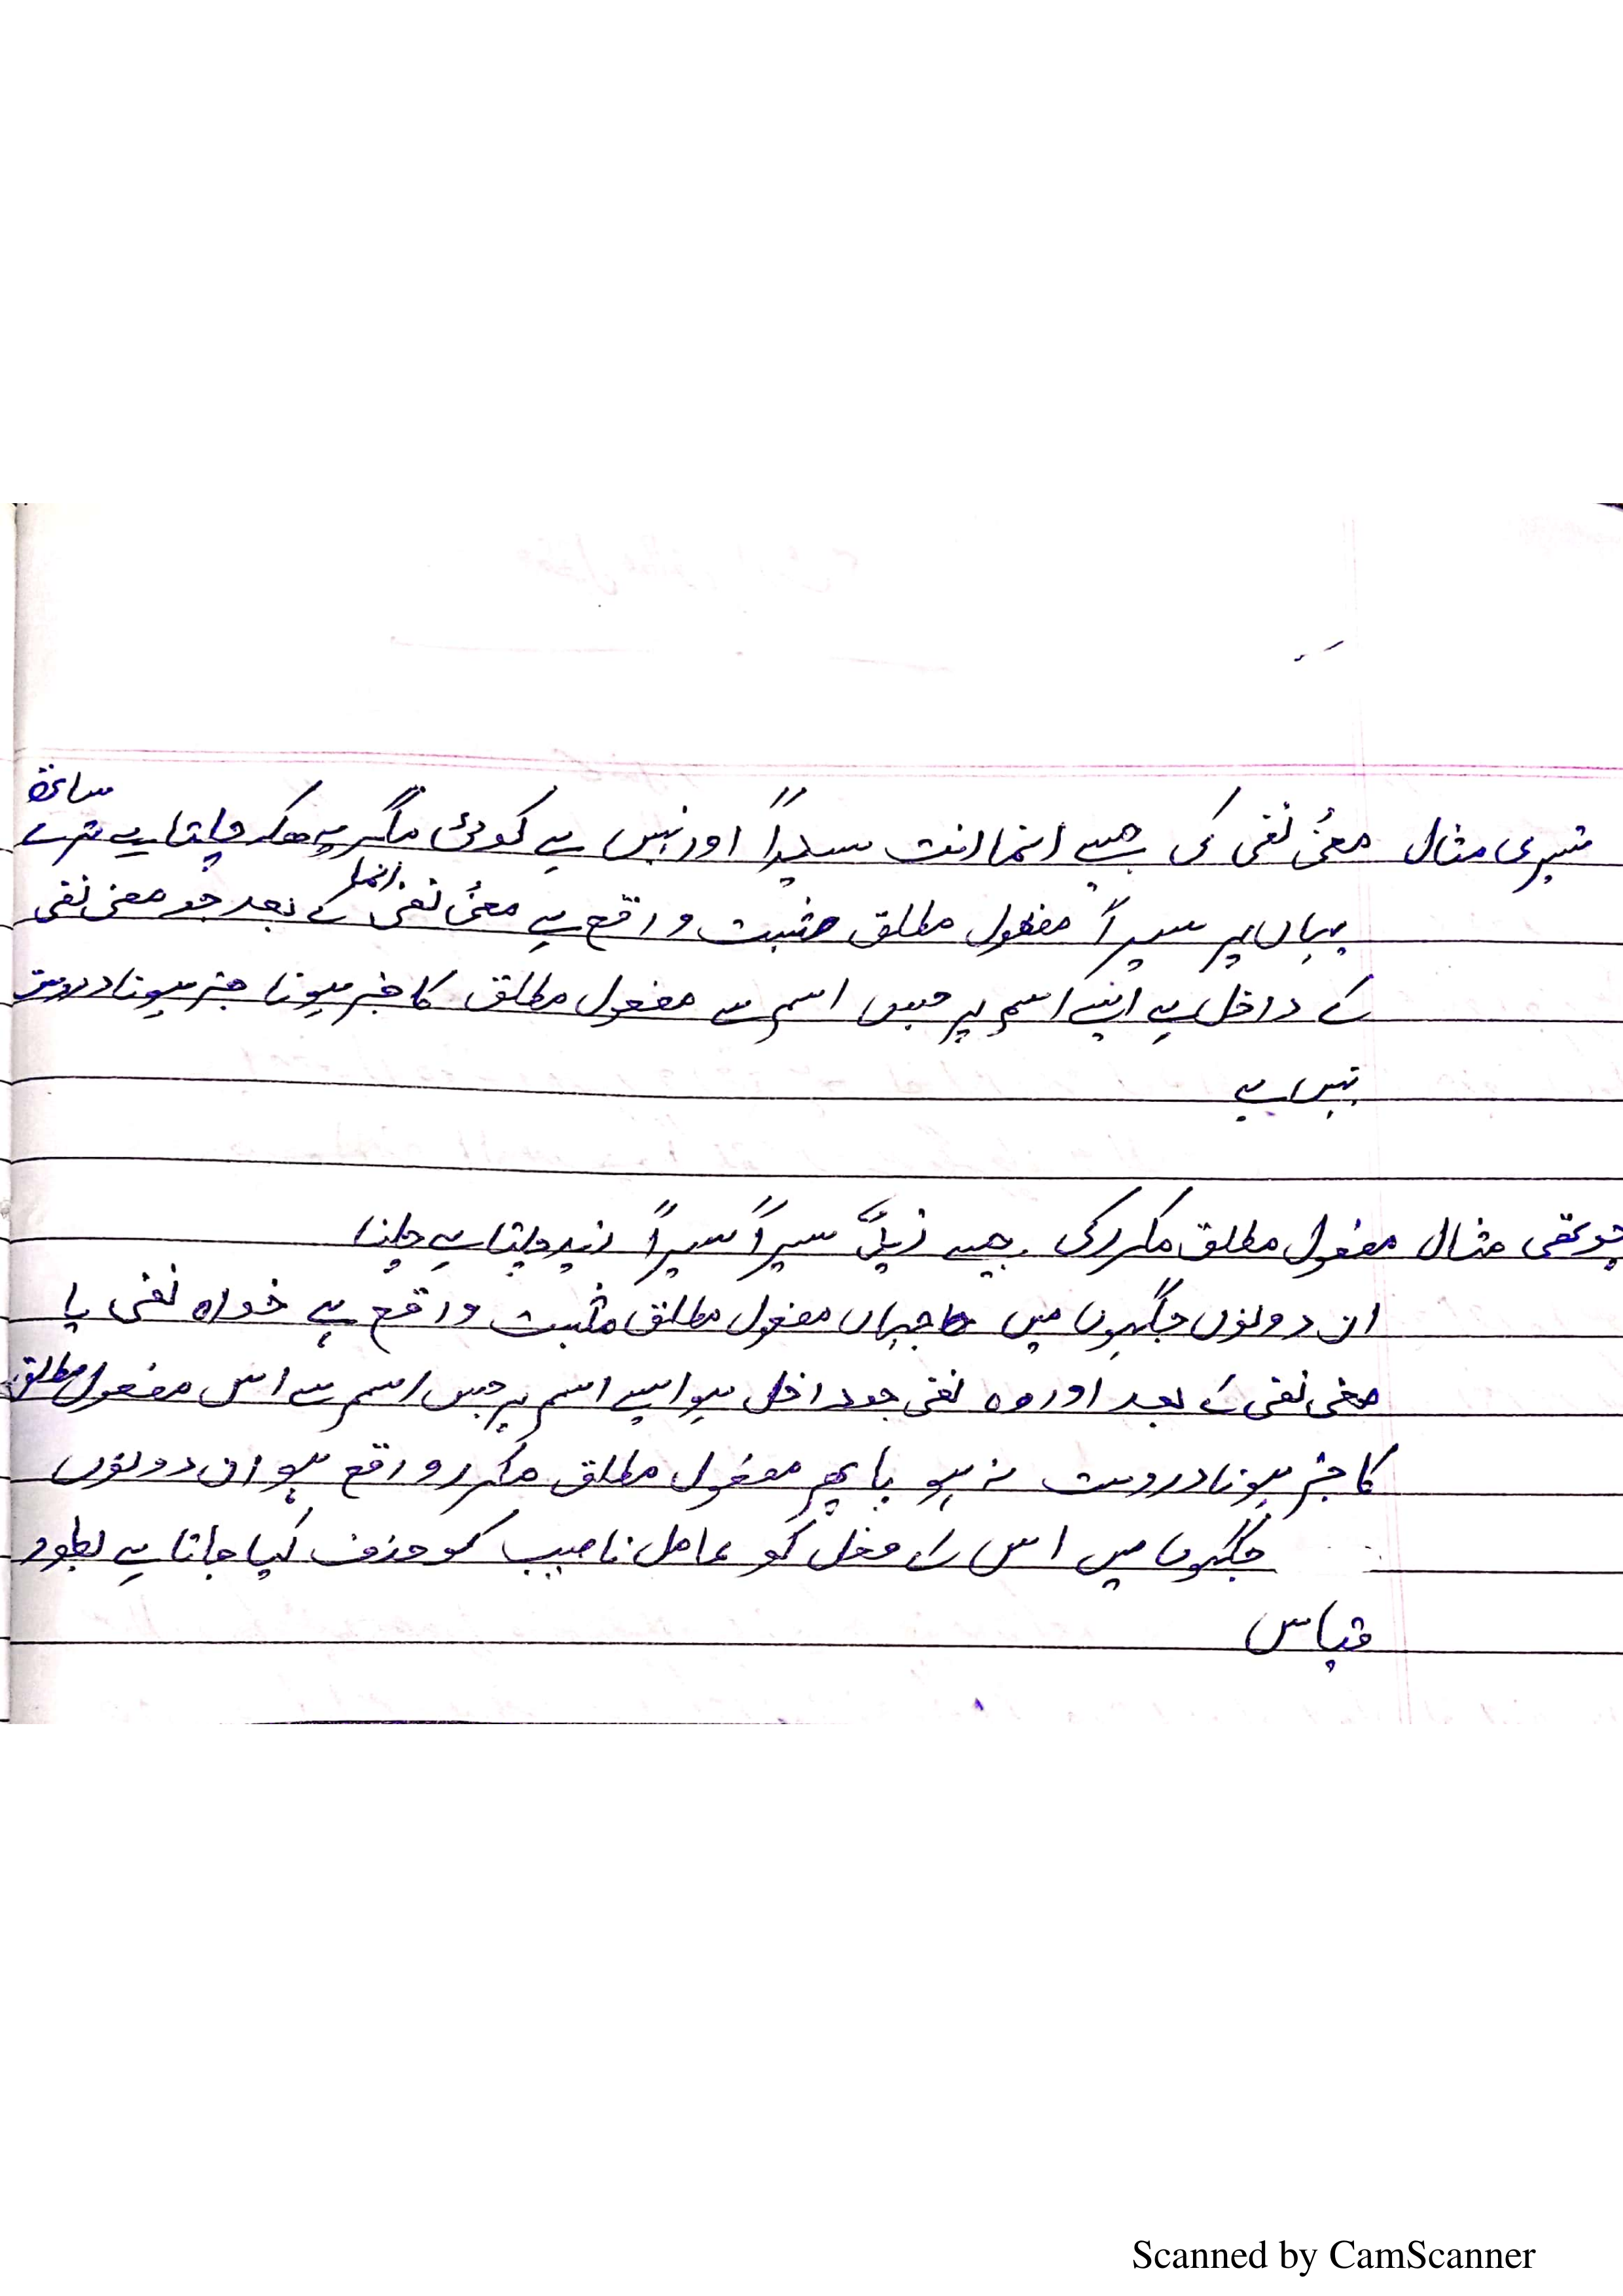 تیسری مثال معنیٰ نفی کی جیسے انما انت سیراً اور نہیں ہے کوئی مگر یہ کہ چلتا ہے تیرے ساتھ
یہاں پر سیراً مفعول مطلق مثبت واقع ہے معنیٰ نفی انما کے بعد جو معنی نفی
کے داخل ہے ایسے اسم پر جس اسم سے مفعول مطلق کا خبر ہونا خبر ہونا درست
نہیں ہے
چوتھی مثال مفعول مطلق مکرر کی جیسے زیدٌ سیراً سیراً زید چلتا ہے چلنا
ان دونوں جگہوں میں جہاں مفعول مطلق مثبت واقع ہے خواہ نفی یا
معنی نفی کے بعد اور وہ نفی جو داخل ہو ایسے اسم پر جس اسم سے اس مفعول مطلق
کا خبر ہونا درست نہ ہو یا پھر مفعول مطلق مکرر واقع ہو ان دونوں
جگہوں میں اس فعل کو عامل ناصب کو حذف کیا جاتا ہے بطور
قیاس
Scanned by CamScanner